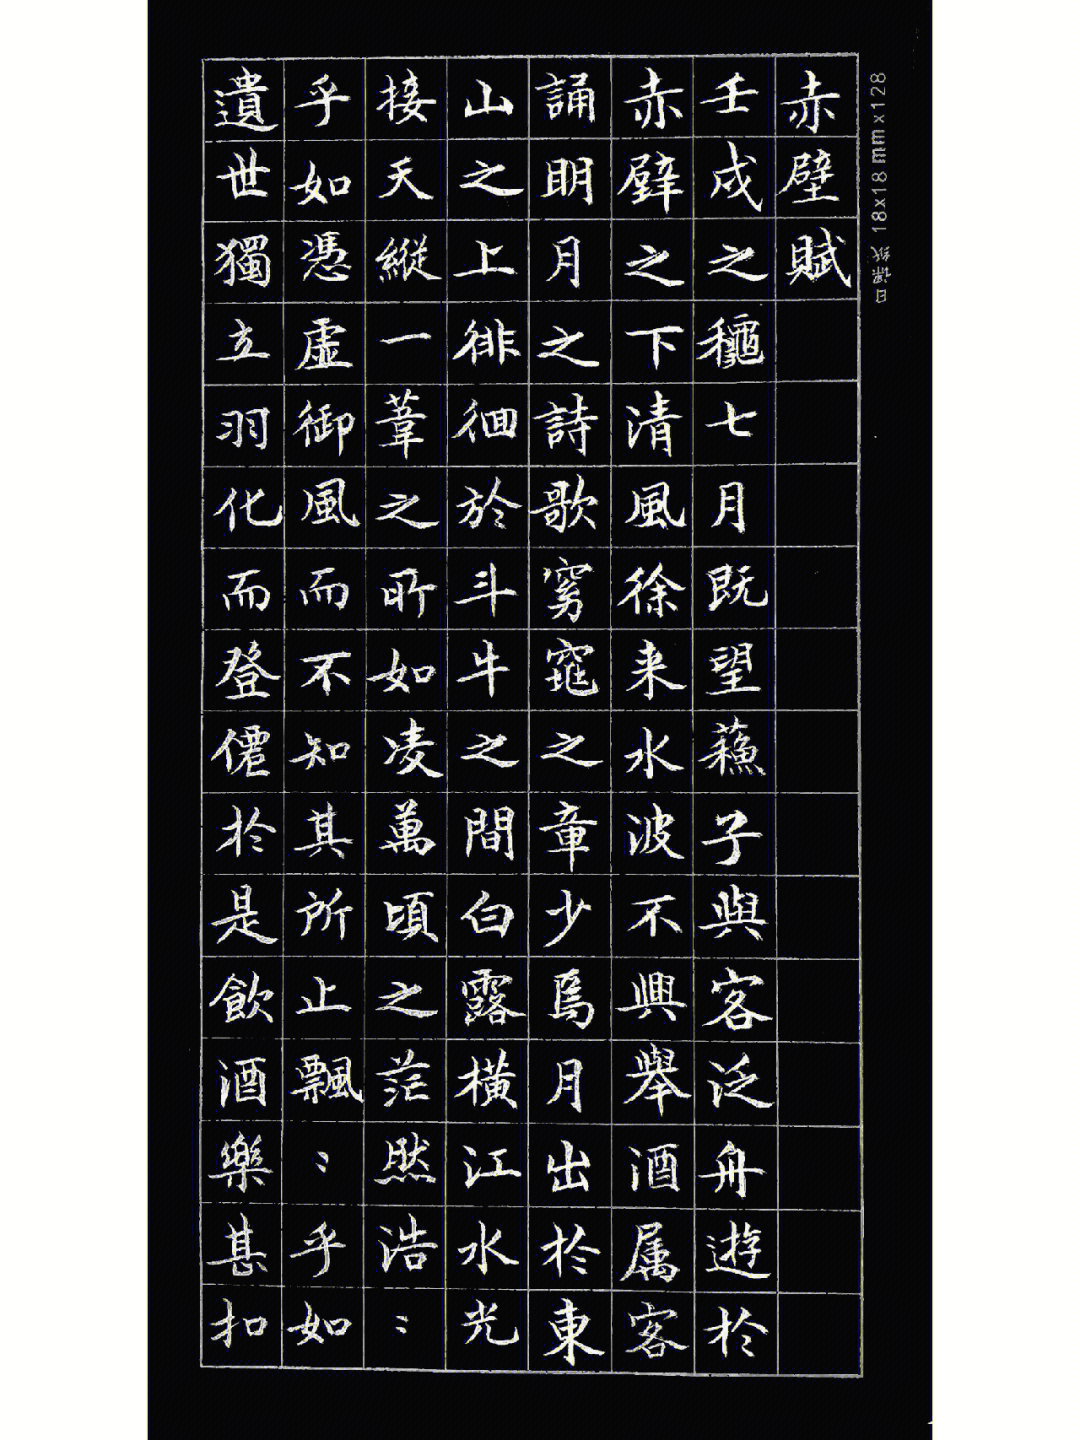 赤壁賦
壬戌之龝七月既望蘓子與客泛舟遊於
赤壁之下清風徐来水波不興舉酒属客
誦明月之詩歌窈窕之章少焉月出於東
山之上徘徊於斗牛之間白露橫江水光
接天縱一葦之所如凌萬頃之茫然浩：
乎如憑虛御風而不知其所止飄：乎如
遺世獨立羽化而登僊於是飲酒樂甚扣
日课纸 18x18mmx128